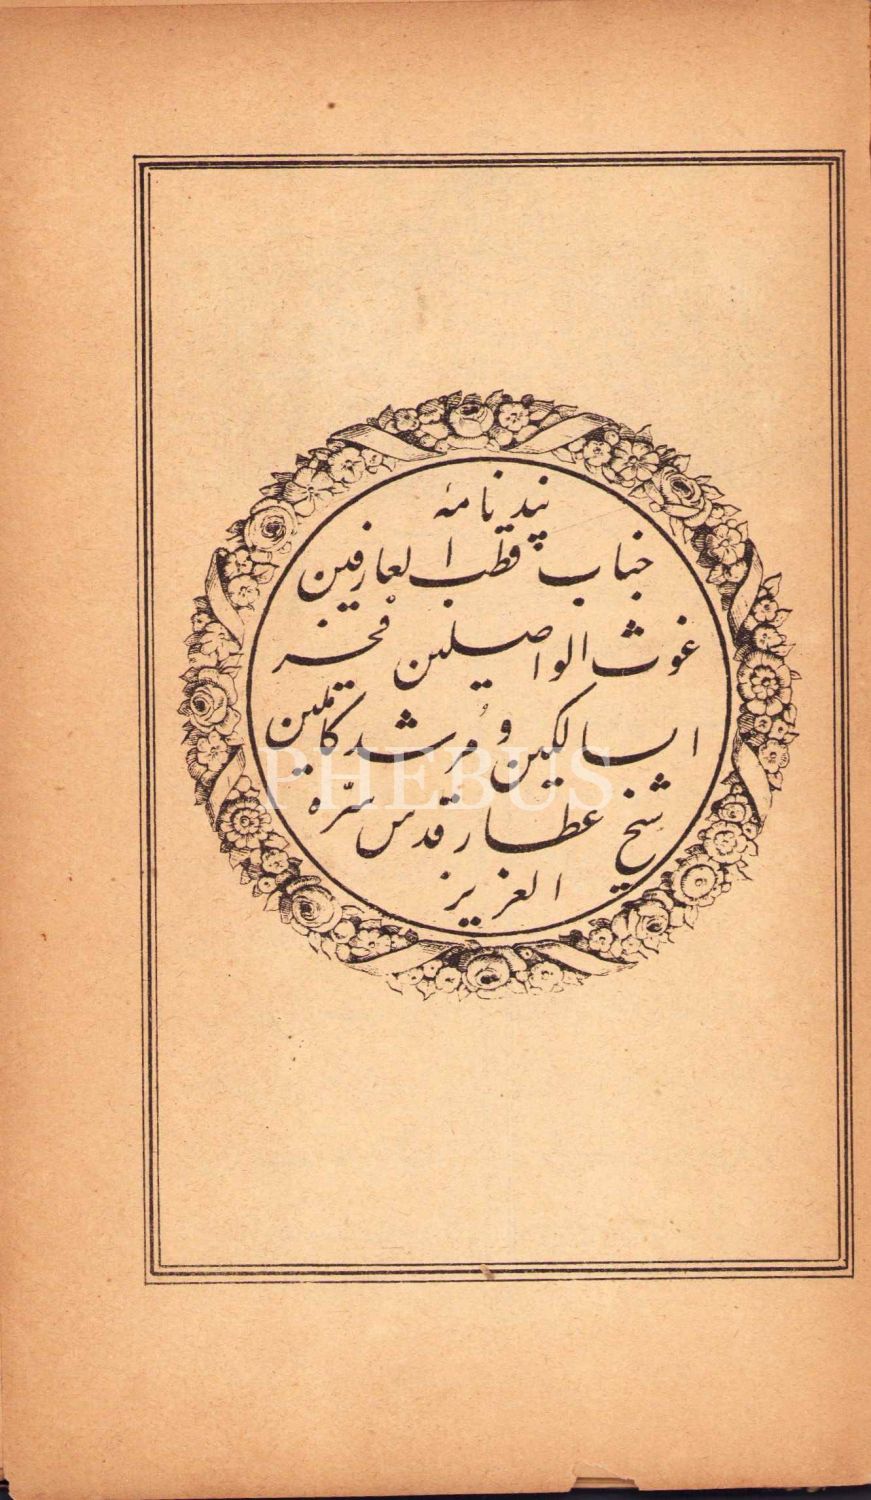 پندنامهٔ
جناب قطب العارفین
غوث الواصلین فخر
السالکین و مُرشد کاملین
شیخ عطار قدس سرّه
العزیز
PHEBUS